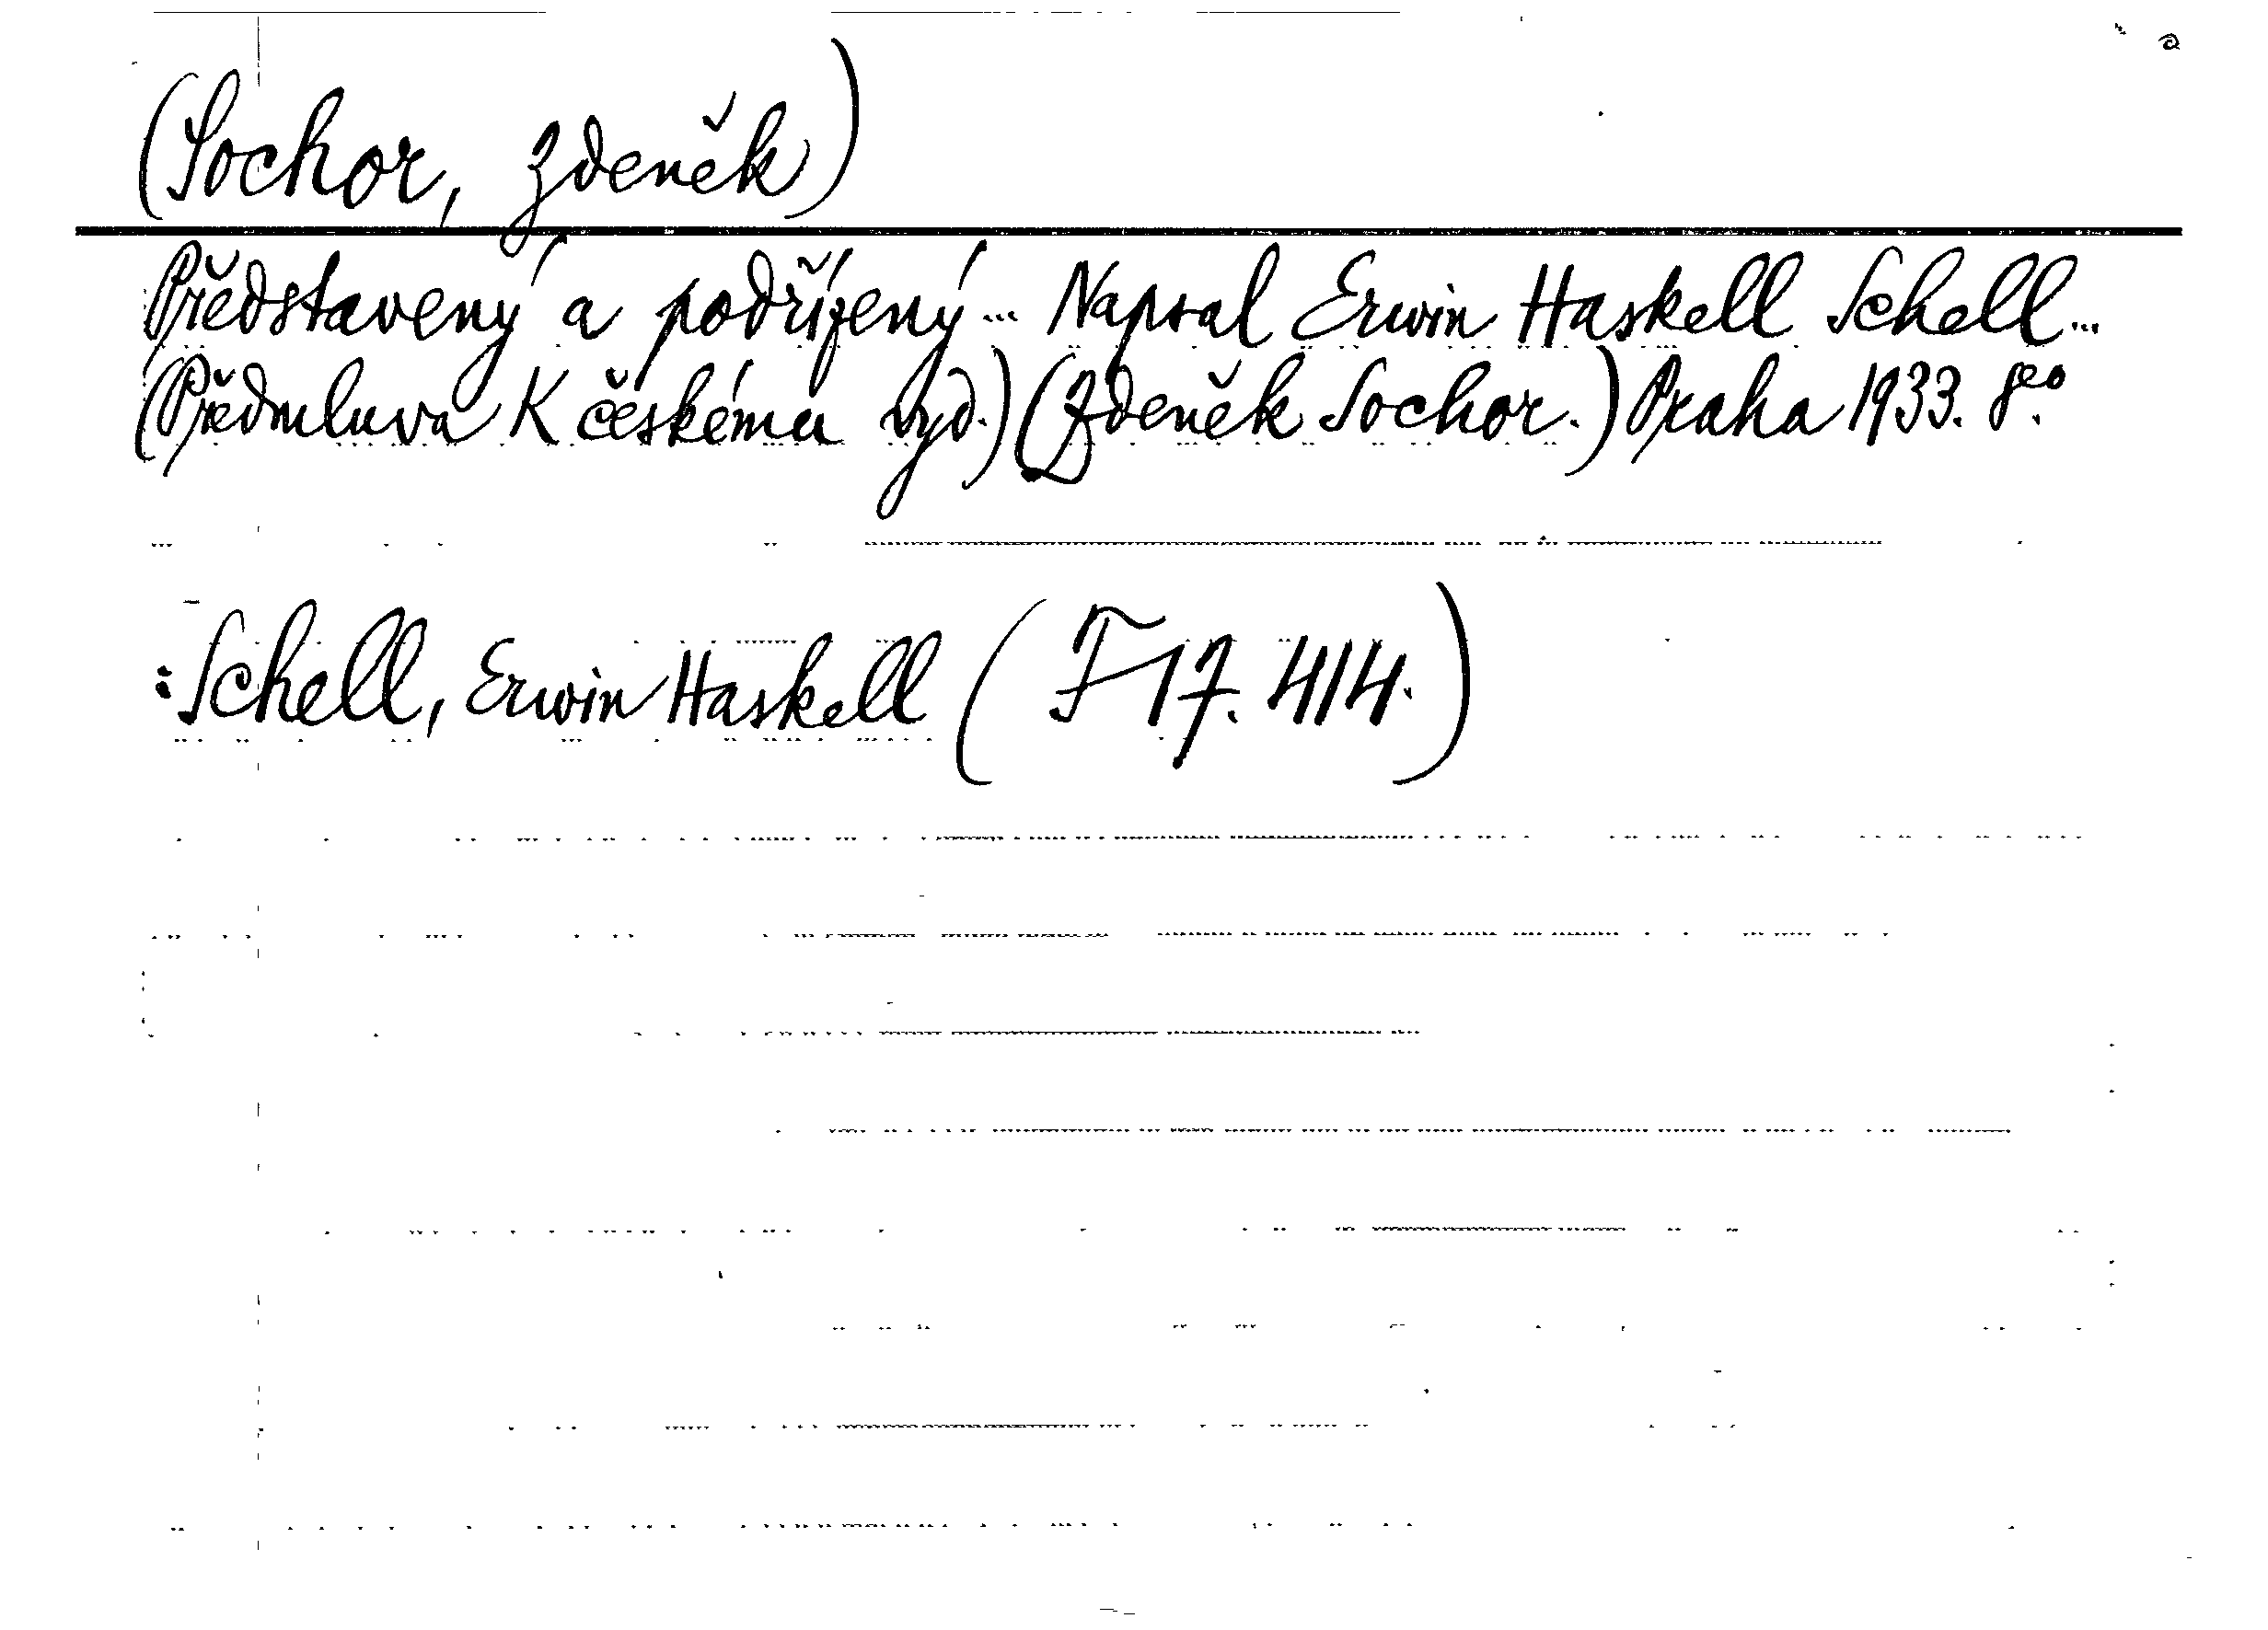 (Sochor, Zdeněk)
Představený a podřízený... Napsal Erwin Haskell Schell...
(Předmluva K českému vyd.) (Zdeněk Sochor.) Praha 1933. 8°.
:Schell, Erwin Haskell (F 17.414.)